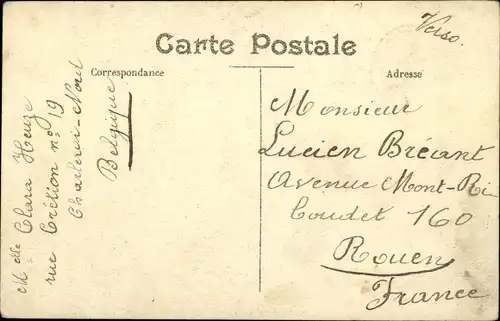 Verso.
Carte Postale
Correspondance
Adresse
Mlle Clara Heuze
rue Crétion no 19
Charleroi-Nord
Belgique
Monsieur
Lucien Bréant
Avenue Mont-Ri
boudet 160
Rouen
France